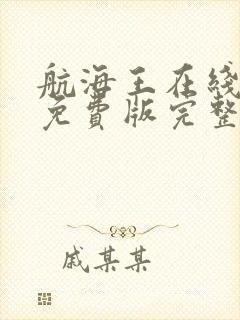 航海王在线
免費版完整
戚某某